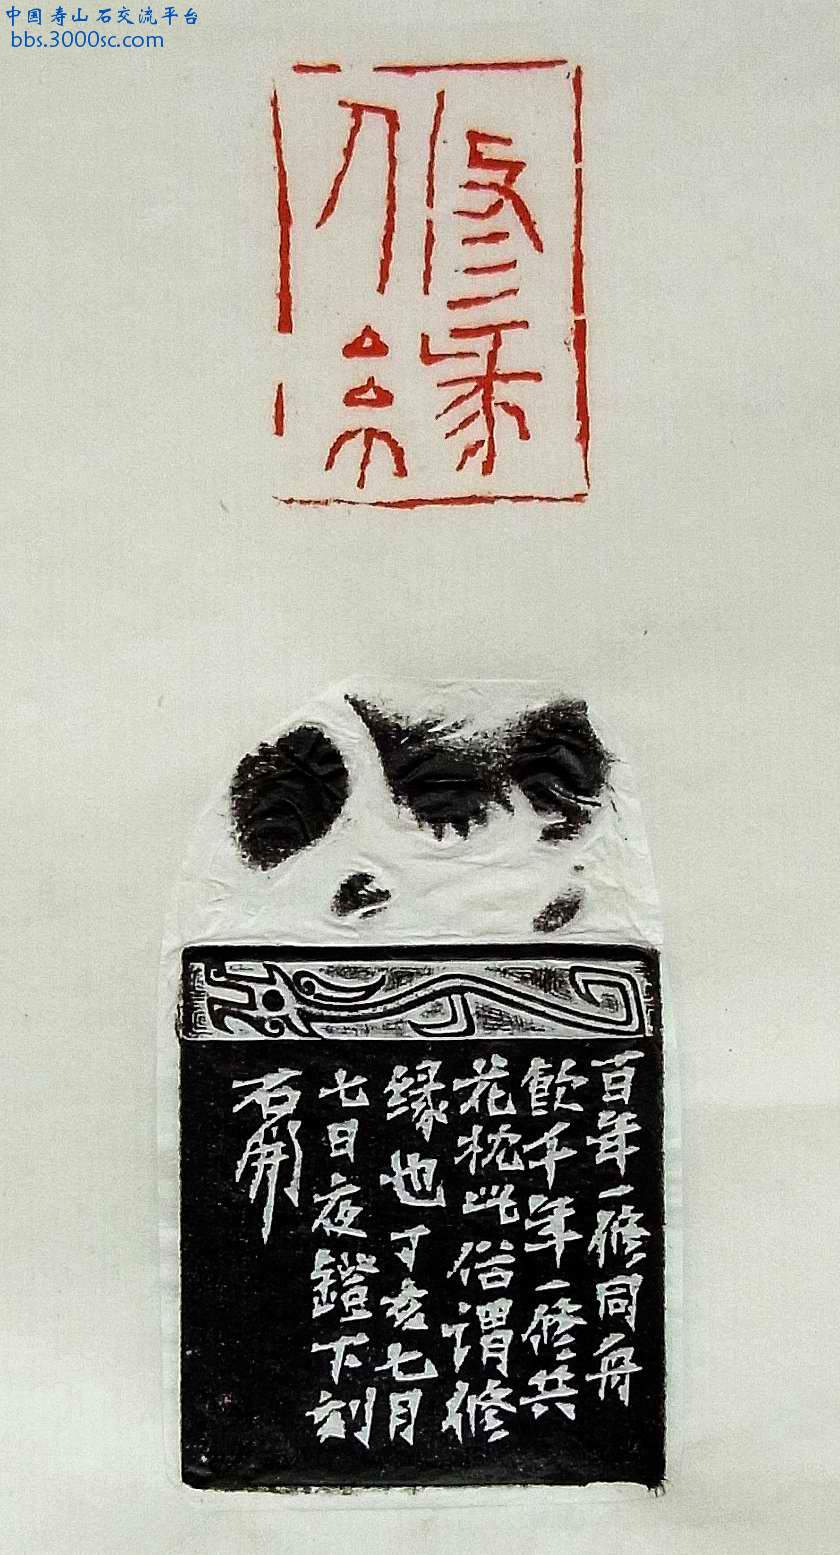 中国寿山石交流平台
bbs.3000sc.com
修緣
百年一修同舟
飲千年一修共
花枕此俗谓修
缘也丁亥七月
七日夜鐙下刻
石開